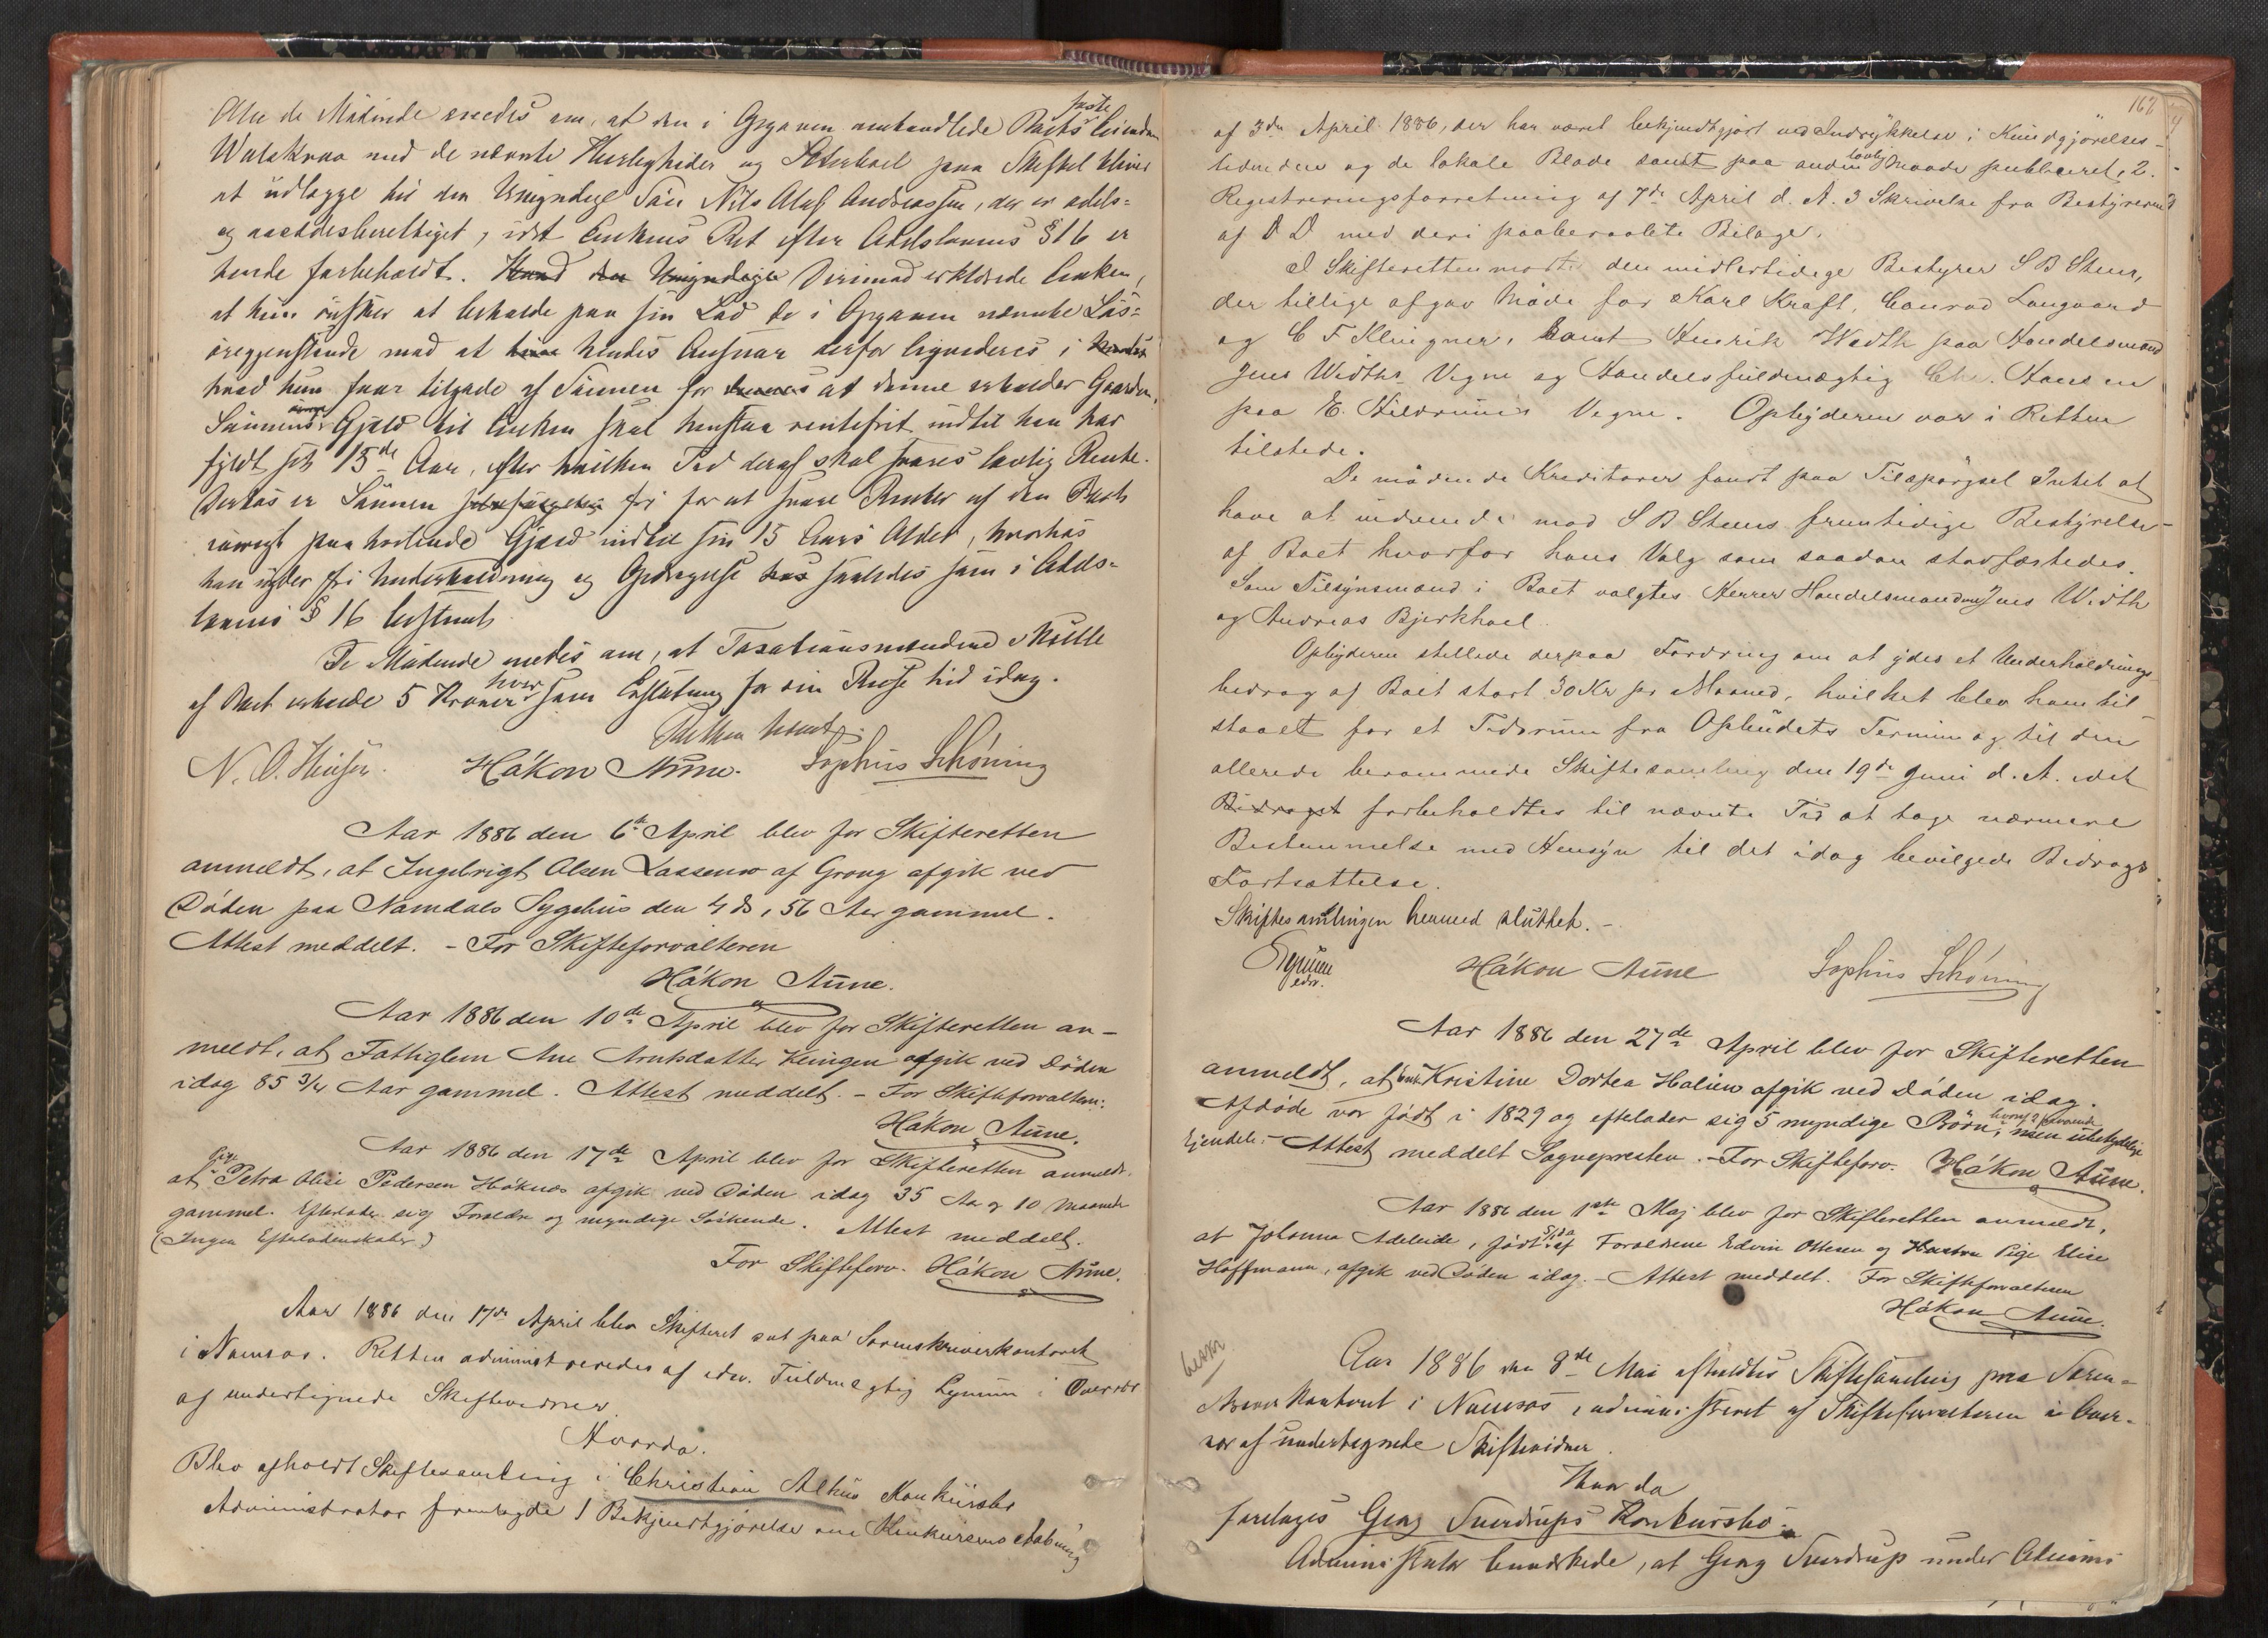 Alle de Mødende enedes om, at den i Opgaven omhandlede Boets faste Eiendom
med de nævnte Herligheder og paa Skiftet bliver
at udlægge til den Umyndige Søn Nils Olaf Andreassen, der er odels-
og aasædesberettiget, idet Enkens Ret efter Odelslovens § 16 er
hende forbeholdt. Derimod erklærede Enken,
at hun ønsker at beholde paa sin Lod de i Opgaven nævnte Løs-
øregjenstande mod at hendes Ansvar derfor ligvideres i
hvad hun faar tilgode af Sønnen for at denne erholder Gaarden.
Sønnens Gjæld til Enken skal henstaa rentefrit indtil han har
fyldt sit 15de Aar, efter hvilken Tid deraf skal svares lovlig Rente.
Derhos er Sønnen fri for at svare Renter af den Boet
iøvrigt paahvilende Gjæld indtil sin 15 Aars Alder, hvorhos
han nyder fri Underholdning og Opdragelse saaledes som i Odels-
lovens § 16 bestemt
De Mødende enedes om, at Taxationsmændene skulle
af Boet erholde 5 Kroner hver som Erstatning for sin Reise hid idag.
Retten hævet.
N. O. Hansen. Håkon Aune. Sophus Schöning
Aar 1886 den 6te April blev for Skifteretten
anmeldt, at Ingebrigt Olsen Lassemo af Grong afgik ved
Døden paa Namdals Sygehus den 4 ds, 56 Aar gammel.
Attest meddelt. - For Skifteforvalteren
Håkon Aune.
Aar 1886 den 10de April blev for Skifteretten an-
meldt, at Fattiglem Ane Arntsdatter Klingen afgik ved Døden
idag 85 3/4 Aar gammel. Attest meddelt. - For Skifteforvalteren:
Håkon Aune.
Aar 1886 den 17de April blev for Skifteretten anmeldt,
at Pige Petra Olise Pedersen Høknes afgik ved Døden idag 35 Aar og 10 Maaneder
gammel. Efterlader sig Forældre og myndige Søskende. Attest meddelt.
(Ingen Efterladenskaber)
For Skifteforv. Håkon Aune.
Aar 1886 den 17de April blev Skifteret sat paa Sorenskriverkontoret
i Namsos. Retten administreredes af edsv. Fuldmægtig Lynum i Overvær
af undertegnede Skiftevidner
Hvorda.
Blev afholdt Skiftesamling i Christian Alhus Konkursbo
Administrator fremlagde 1 Bekjendtgjørelse om Konkursens Aabning
162
af 3die April 1886, der har været bekjendtgjort ved Indrykkelse i Kundgjørelses-
tidenden og de lokale Blade samt paa anden lovlig Maade publiceret, 2.
Registreringsforretning af 7de April d. A. 3 Skrivelse fra Bestyreren
af D D med deri paaberaabte Bilage.
I Skifteretten mødte den midlertidige Bestyrer S B Steen,
der tillige afgav Møde for Karl Kraft, Conrad Langaard
og C F Klingner, samt Henrik Wedth paa Handelsmand
Jens Widths Vegne og Handelsfuldmægtig Chr. Hansen
paa E. Hildrums Vegne. Opbyderen var i Retten
tilstede.
De mødende Kreditorer fandt paa Tilspørgsel Intet at
have at indvende mod S B Steens fremtidige Bestyrelse
af Boet hvorfor hans Valg som saadan stadfæstedes.
Som Tilsynsmænd i Boet valgtes Herrer Handelsmændene Jens Width
og Andreas Bjerkhoel.
Opbyderen stillede derpaa Fordring om at ydes et Underholdnings-
bidrag af Boet stort 30 Kr pr Maaned, hvilket blev ham til-
staaet for et Tidsrum fra Opbudets Termin og til den
allerede berammede Skiftesamling den 19de Juni d. A. idet
Bidraget forbeholdtes til nævnte Tid at tage nærmere
Bestemmelse med Hensyn til det idag bevilgede Bidrags
Fortsættelse.
Skiftesamlingen hermed sluttet. -
Lynum edsv. Håkon Aune Sophus Schöning
Aar 1886 den 27de April blev for Skifteretten
anmeldt, at Enke Kristine Dortea Halien afgik ved Døden idag.
Afdøde var født i 1829 og efterlader sig 5 myndige Børn, hvoraf 2 fraværende men ubetydelige
Ejendele. - Attest meddelt Sognepresten. - For Skifteforv. Håkon Aune.
Aar 1886 den 1ste Maj blev for Skifteretten anmeldt,
at Johanna Adeleide, født af Forældrene Edvin Ottesen og Pige Elise
Hoffmann, afgik ved Døden idag. - Attest meddelt. For Skifteforvalteren
Håkon Aune.
Aar 1886 den 8de Mai afholdtes Skiftesamling paa Soren-
skriverkontoret i Namsos, administreret af Skifteforvalteren i Over-
vær af undertegnede Skiftevidner.
Hvorda
foretages Georg Sverdrups Konkursbo:
Administrator bemærkede, at Georg Sverdrup under